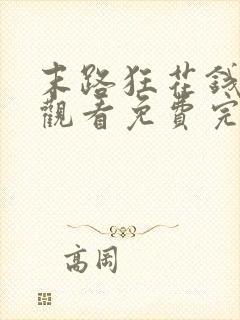 末路狂花錢
觀看免費完
高岡